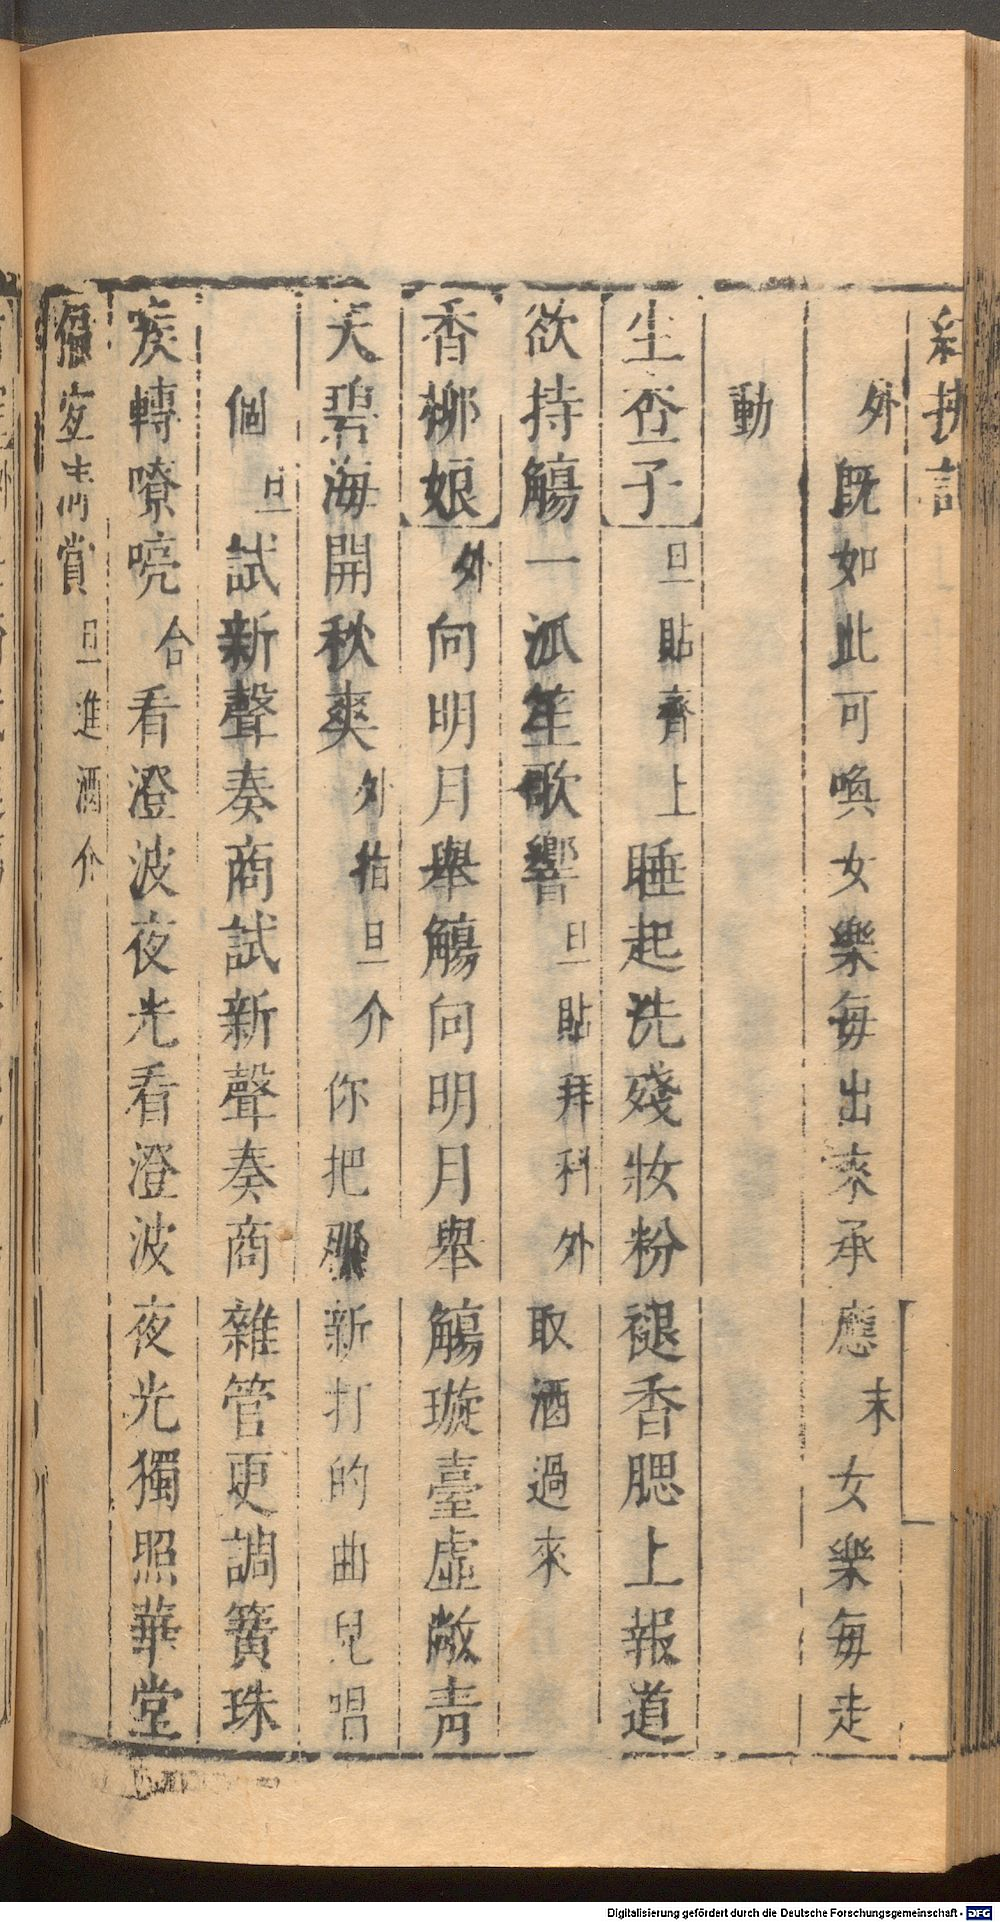 紅拂記
外既如此可喚女樂每出來承應末女樂每走
動
生查子旦貼齊上睡起洗殘妝粉褪香腮上報道
欲持觴一派笙歌響旦貼拜科外取酒過來
香柳娘外向明月舉觴向明月舉觴璇臺虛敞青
天碧海開秋爽外指旦介你把那新打的曲兒唱
個旦試新聲奏商試新聲奏商雜管更調簧珠
疾轉嘹喨合看澄波夜光看澄波夜光獨照華堂
偏宜清賞旦進酒介
Digitalisierung gefördert durch die Deutsche Forschungsgemeinschaft - DFG